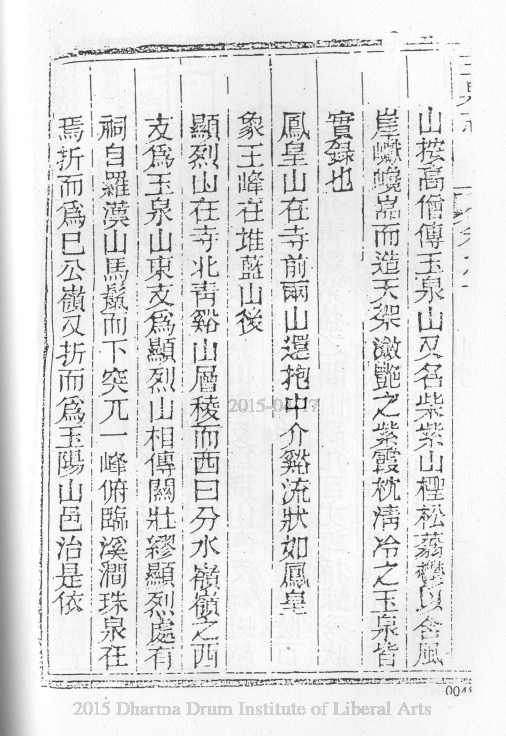 山按高僧傳玉泉山又名柴紫山檉松蓊欝以含風
崖巘巉嵓而造天架瀲艷之紫霞枕清冷之玉泉皆
實録也
鳳皇山在寺前兩山還抱中介谿流狀如鳳皇
象王峰在堆藍山後
顯烈山在寺北靑谿山層稜而西曰分水嶺嶺之西
支爲玉泉山東支爲顯烈山相傳關壯繆顯烈處有
祠自羅漢山馬鬛而下突兀一峰俯臨溪澗珠泉在
焉折而爲巳公嶺又折而爲玉陽山邑治是依
2015 Dharma Drum Institute of Liberal Arts